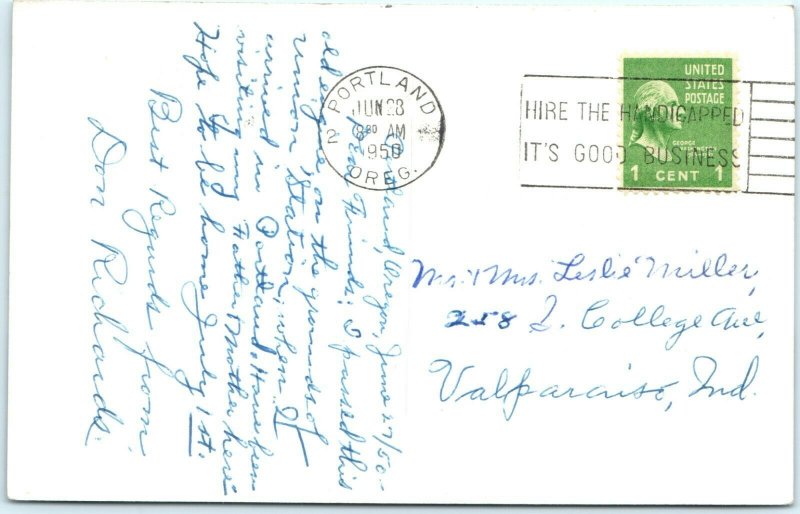 PORTLAND
JUN 28
8 30 AM
1950
OREG.
2
HIRE THE HANDICAPPED
IT'S GOOD BUSINESS
UNITED
STATES
POSTAGE
GEORGE
WASHINGTON
1 CENT 1
Portland, Oregon, June 27/50.
Dear Friends: I passed this
old engine on the grounds of
Union Station, when I
arrived in Portland. Have been
visiting my Father & Mother here
Hope to be home July 1st.
Best Regards from
Don Richards.
Mr. & Mrs. Leslie Miller,
258 S. College Ave,
Valparaiso, Ind.